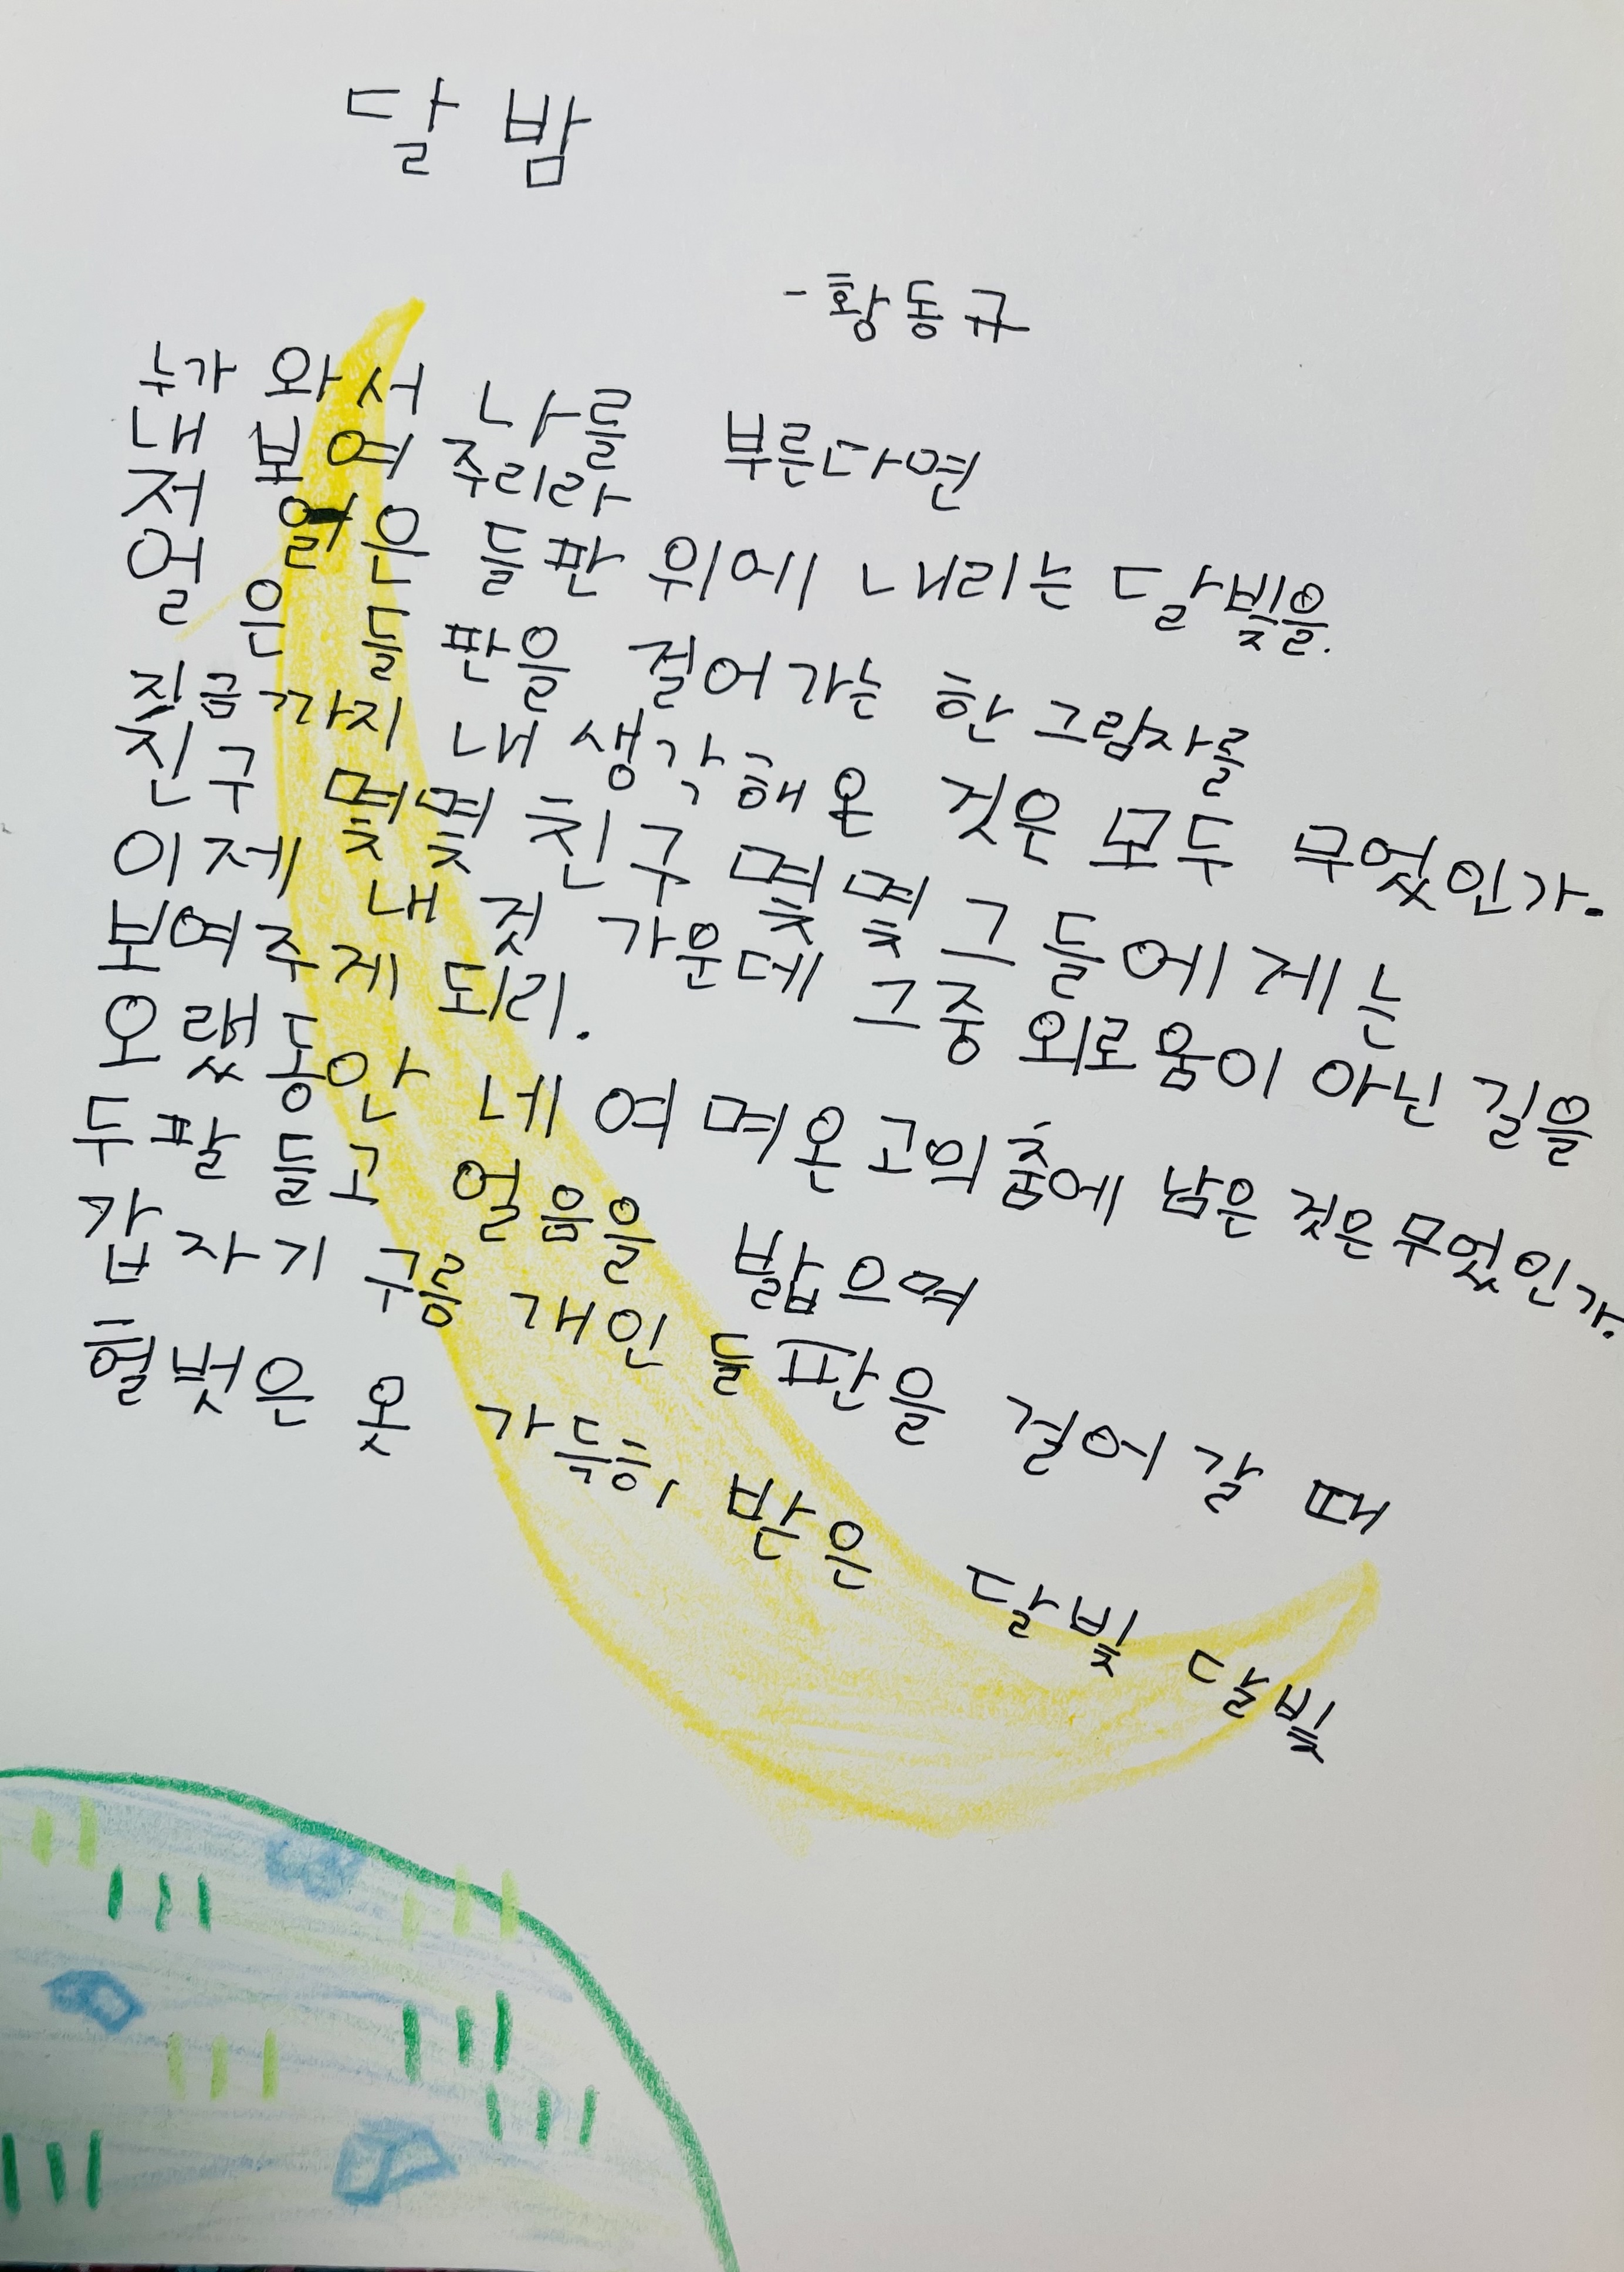 달밤
- 황동규
누가 와서 나를 부른다면
내 보여 주리라
저 얼은 들판 위에 내리는 달빛을.
얼은 들판을 걸어가는 한 그림자를
지금까지 내 생각해 온 것은 모두 무엇인가.
친구 몇몇 친구 몇몇 그들에게는
이제 내 것 가운데 그중 외로움이 아닌 길을
보여주게 되리.
오랫동안 네 여며온 고의춤에 남은 것은 무엇인가.
두 팔 들고 얼음을 밟으며
갑자기 구름 개인 들판을 걸어갈 때
헐벗은 옷 가득히 받은 달빛 달빛